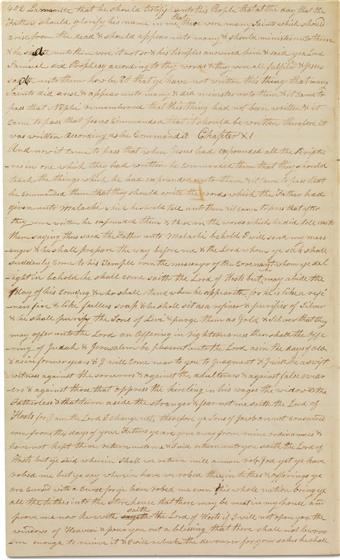 402 Lamanite that he should testify unto this People that at the day that the
Father should glorify his name in me that there were many Saints which should
arise from the dead & should appear unto many & should minister unto them
& he said unto them were it not so & his Disciples answered him & said yea Lord
Samuel did Prophesy according to thy words & they were all fulfilled & Jesus
said unto them how be it that ye have not written this thing that many
Saints did arise & appear unto many & did minister unto them & it came to
pass that Nephi remembered that this thing had not been written & it
came to pass that Jesus Commanded that it should be written therefore it
was written according as he Commanded Chapter XI
And now it came to pass that when Jesus had expounded all the Scriptu
res in one which they had written he commanded them that they should
teach the things which he had expounded unto them & it came to pass that
he commanded them that they should write the words which the Father had
given unto Malachi which he should tell unto them & it came to pass that after
they were written he expounded them & these are the words which he did tell unto
them saying thus said the Father unto Malachi behold I will send my mess
enger & he shall prepare the way before me & the Lord whom ye seek shall
suddenly come to his Temple even the messenger of the Covenant whom ye del
ight in behold he shall come saith the Lord of Hosts but who may abide the
day of his coming & who shall stand when he appeareth for he is like a refi
ners fire & like fullers soap & he shall sit as a refiner & purifier of Silver
& he shall purify the Sons of Levi & purge them as gold & silver that they
may offer unto the Lord an offering in righteousness then shall the offe
ring of Judah & Jerusalem be pleasant unto the Lord as in the days of old
& as in former years & I will come near to you to judgment & I will be a swift
witness against the sorcerers & against the adulterers & against false swear
ers & against those that oppress the hireling in his wages the widow & the
Fatherless & that turn aside the stranger & fear not me saith the Lord of
Hosts for I am the Lord I change not therefore ye Sons of Jacob are not consumed
even from the days of your Fathers ye are gone away from mine ordinances &
have not kept them return unto me & I will return unto you saith the Lord of
Hosts but ye said wherein shall we return will a man rob God yet ye have
robed me but ye say wherein have we robed thee in tithes & offerings ye
are cursed with a curse for ye have robed me even this whole nation bring ye
all the tithes into the Storehouse that there may be meat in my house &
prove me now herewith saith the Lord of Hosts if I will not open you the
windows of Heaven & pour you out a blessing that there shall not be room
enough to receive it & I will rebuke the devourer for your sakes he shall